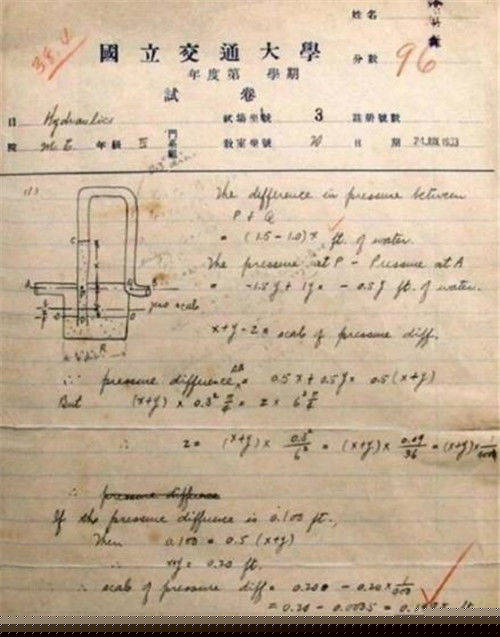 姓名
38.4
國立交通大學
年度第 學期
分數 96
試卷
目 Hydraulics 試場坐號 3 註冊號數
院 M.E. 年級 IV 門系組 教室坐號 20 日期 24 JUN 1933
(1)
0.3" dia
The difference in pressure between
P & Q
= (1.5-1.0)x ft. of water.
The pressure at P - Pressure at A
= -1.5y + 1y = -0.5y ft. of water.
C
A
B
P
Q
zero scale
R
6" dia
x+y-z = scale of pressure diff.
∴ pressure difference AB = 0.5x + 0.5y = 0.5(x+y)
But (x+y) x 0.3² π/4 = z x 6² π/4
∴ z = (x+y) x 0.3²/6² = (x+y) x 0.09/36 = (x+y) x 1/400
∴ pressure difference
If the pressure difference is 0.100 ft.,
Then 0.100 = 0.5 (x+y)
∴ x+y = 0.20 ft.
∴ scale of pressure diff = 0.200 - 0.20 x 1/400
= 0.20 - 0.0005 = ft